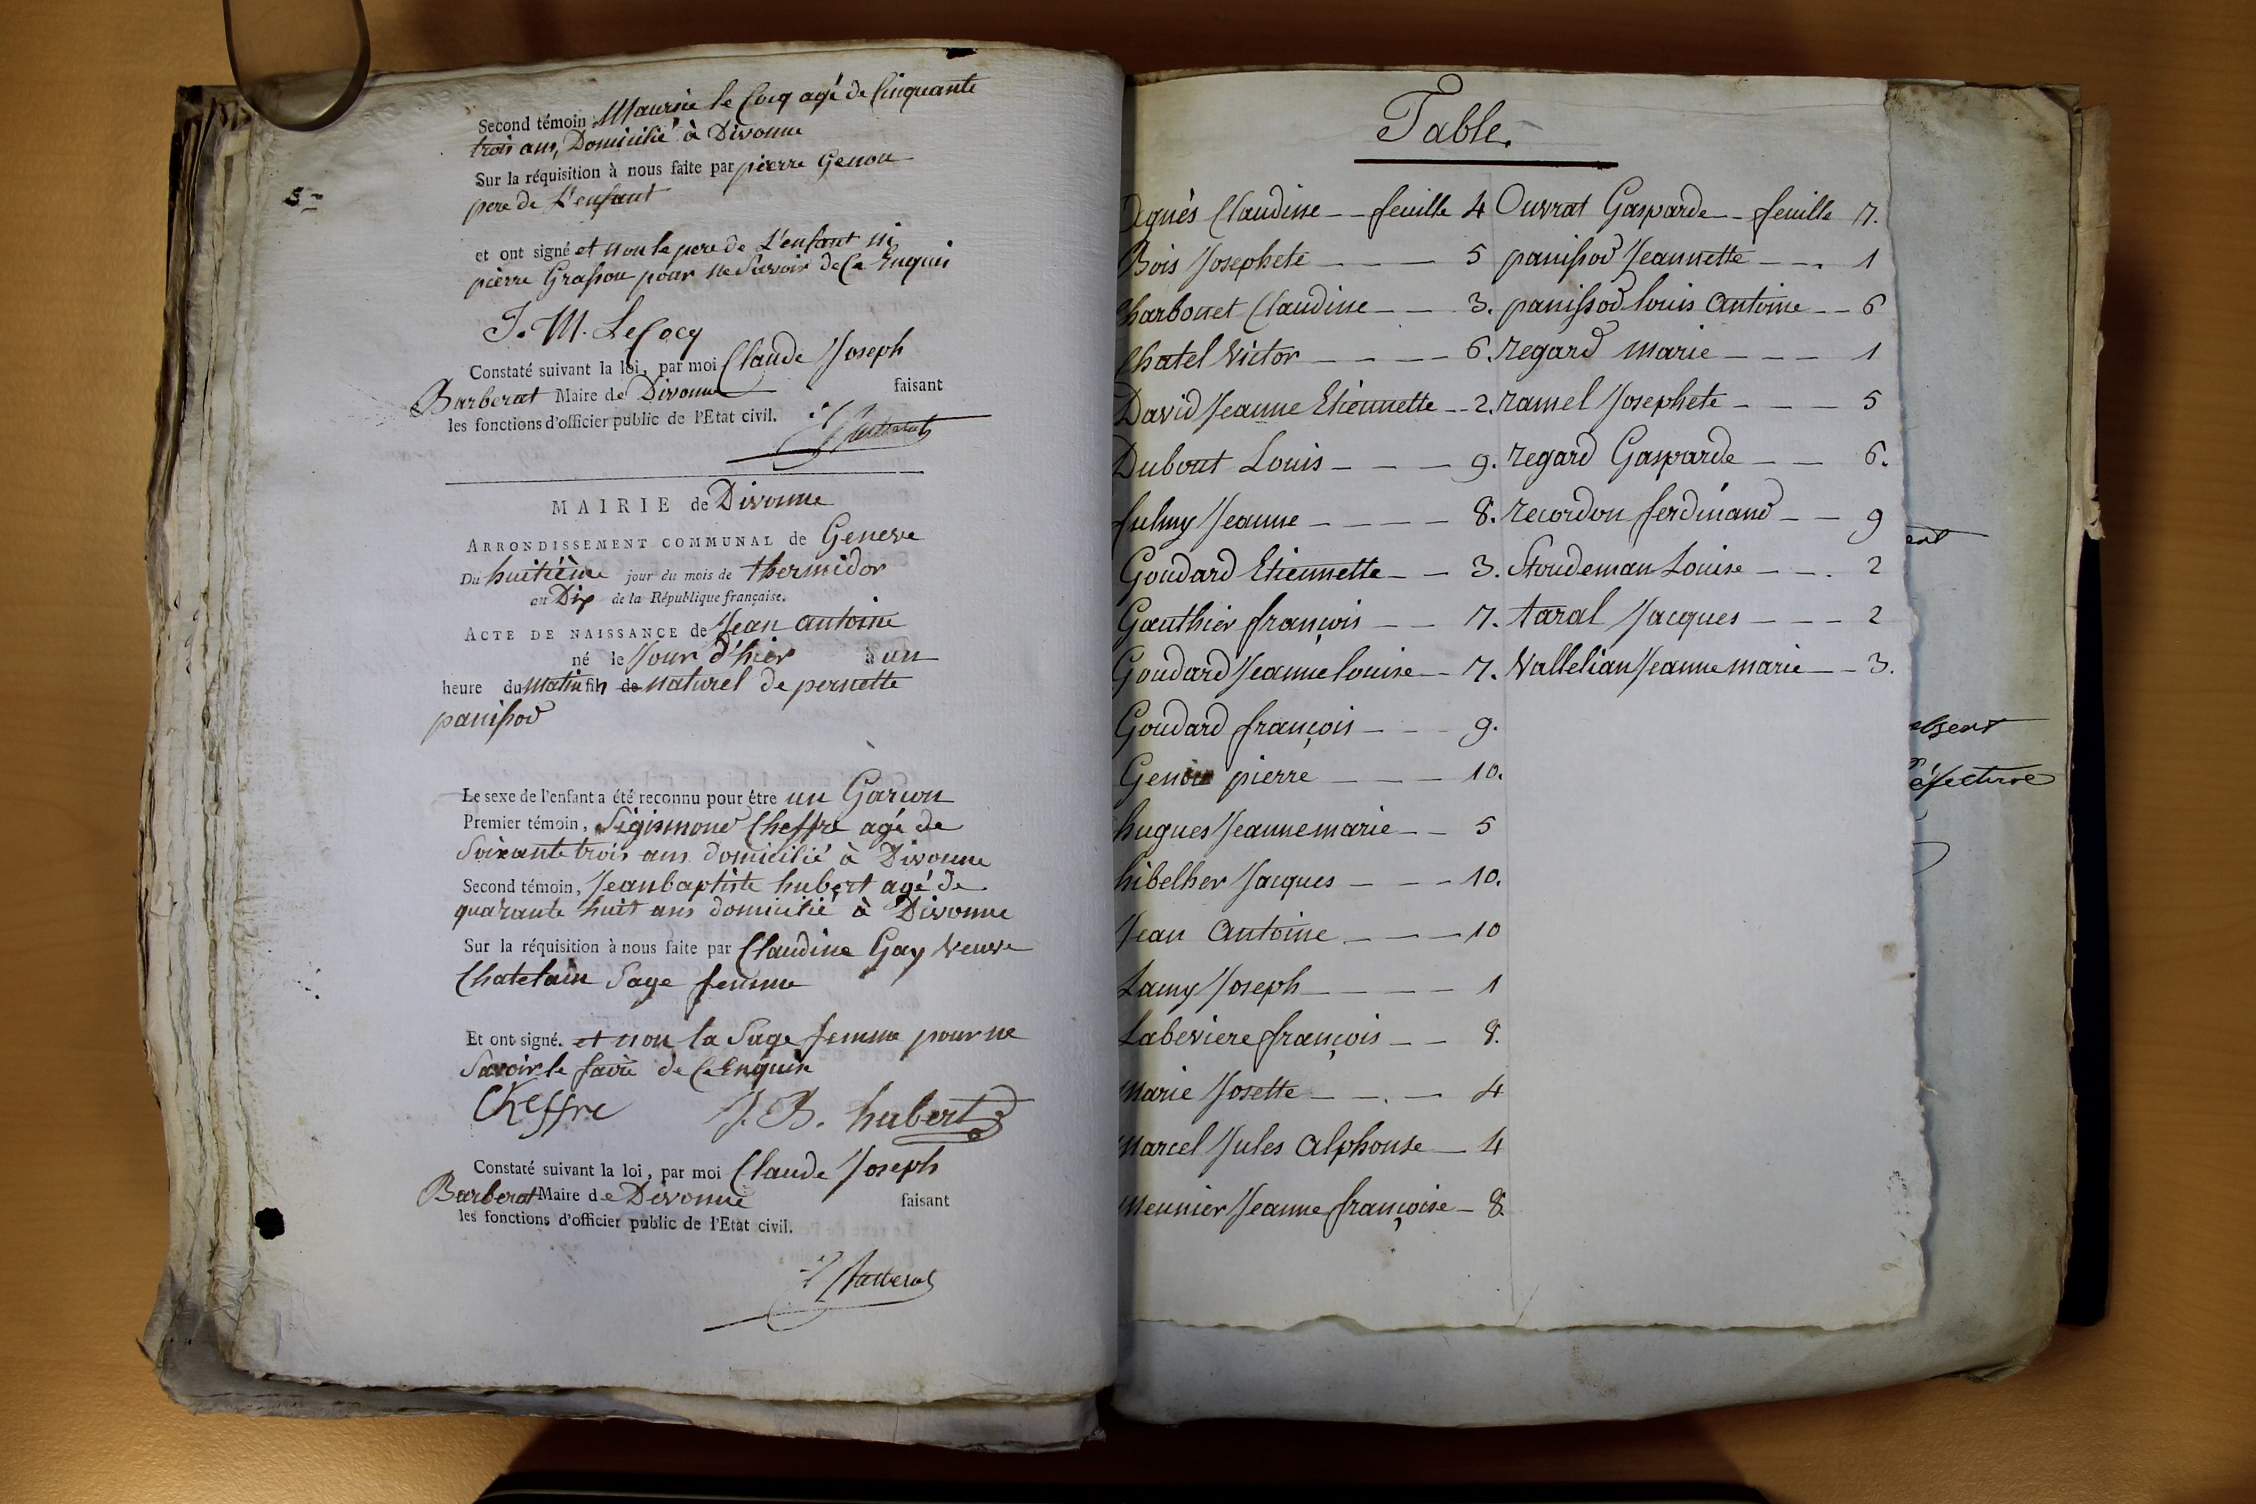 Second témoin, Maurice le Cocq agé de Cinquante
trois ans, Domicilié à Divonne
Sur la réquisition à nous faite par pierre Genou
pere de L'enfant
5
et ont signé et non le pere de L'enfant ni
pierre Grasson pour ne Savoir de Ce Enquis
J. M. LeCocq
Constaté suivant la loi, par moi Claude Joseph
Barberat Maire de Divonne faisant
les fonctions d'officier public de l'Etat civil.
Barberat
MAIRIE de Divonne
ARRONDISSEMENT COMMUNAL de Geneve
Du huitième jour du mois de thermidor
an Dix de la République française.
ACTE DE NAISSANCE de Jean antoine
né le Jour d'hier à un
heure du matin fils de naturel de pernette
panissod
Le sexe de l'enfant a été reconnu pour être un Garcon
Premier témoin, Sigismond Cheffre agé de
Soixante trois ans domicilié à Divonne
Second témoin, Jean baptiste hubert agé de
quarante huit ans domicilié à Divonne
Sur la réquisition à nous faite par Claudine Gay Veuve
Chatelain Sage femme
Et ont signé. et non la Sage femme pour ne
Savoir le faire de Ce Enquise
Cheffre J. B. hubert
Constaté suivant la loi, par moi Claude Joseph
Barberat Maire de Divonne faisant
les fonctions d'officier public de l'Etat civil.
Barberat
Table.
Claudine -- feuille 4
Bois Josephete ---- 5
harbonet Claudine -- 3.
hatel Victor ---- 6.
David Jeanne Etiennette -- 2.
Dubout Louis --- 9.
Jeanne ---- 8.
Goudard Etiennette -- 3.
Gauthier françois -- 7.
Goudard Jeanne louise -- 7.
Goudard françois --- 9.
Genou pierre --- 10.
hugues Jeanne marie -- 5
hibelher Jacques --- 10.
Jean antoine --- 10
Lamy Joseph ---- 1
Labeviere françois -- 8.
Marie Josette --- 4
Marcel Jules alphonse - 4
Meunier Jeanne françoise - 8.
Ouvrat Gasparde - feuille 7.
panissod Jeannette --- 1
panissod louis antoine -- 6
regard marie --- 1
ramel Josephete --- 5
regard Gasparde -- 6.
recordon ferdinand -- 9
Stoudeman Louise --- 2
taral Jacques --- 2
Vallelian Jeanne marie -- 3.